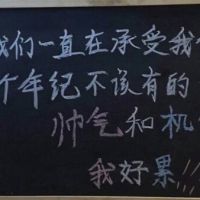 我们一直在承受我
个年纪不该有的
帅气和机
我好累!!!